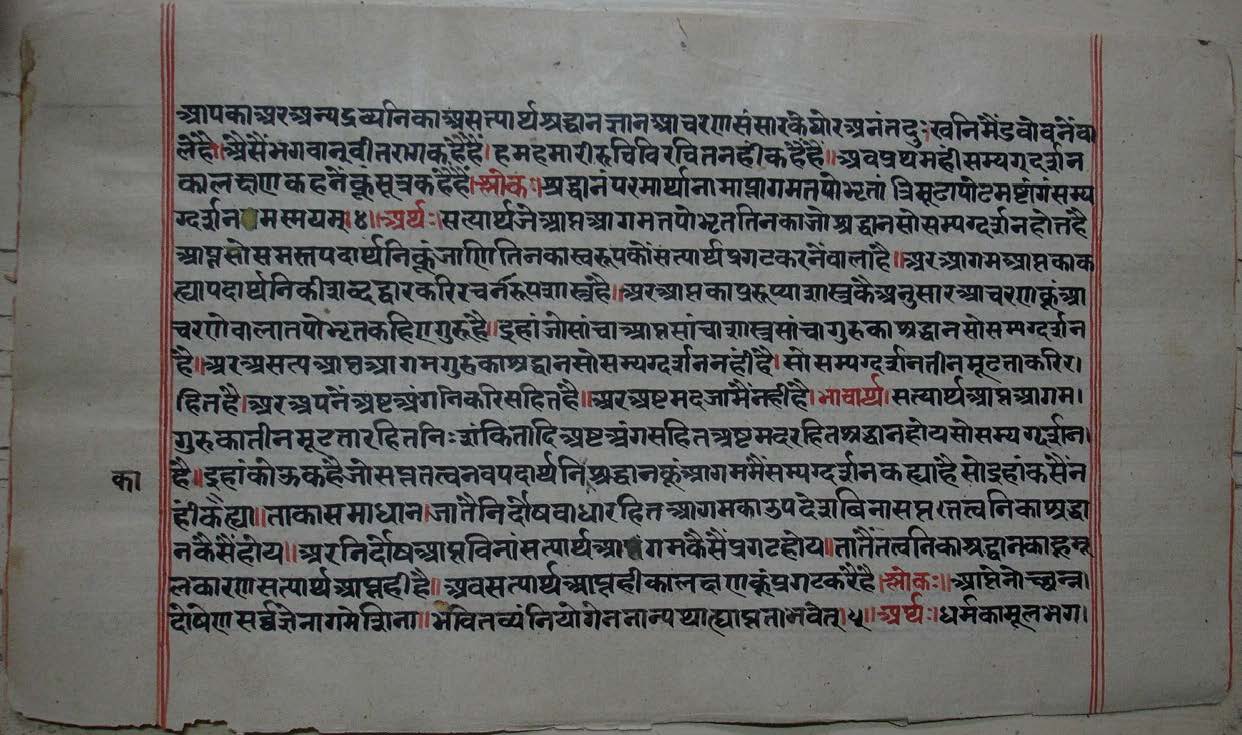 आपका अर अन्य द्रव्यनिका असत्यार्थ श्रद्धान ज्ञान आचरण संसार के घोर अनंत दुःखनिमैं डबोवनें वा
लेहैं॥ अैसैं भगवान् वीतराग कहैहैं। हम हमारी रुचि विरचित नहीं कहैहैं॥ अब प्रथमहीं सम्यग्दर्शन
का लक्षण कहनेंकूं सूत्र कहैहैं। श्लोकः। श्रद्धानं परमार्थानामाप्तागमतपोभृतां त्रिमूढापोढमष्टांगं सम्य
ग्दर्शनमस्मयम्।४॥ अर्थः। सत्यार्थ जे आप्त आगम तपोभृत तिनका जो श्रद्धान सो सम्यग्दर्शन होत है
आप्त सो समस्त पदार्थनिकूं जाणि तिनका स्वरूपकों सत्यार्थ प्रगट करनेंवाला है॥ अर आगम आप्तका क
ह्या पदार्थनिकी शब्दद्वारकरि रचनारूप शास्त्र है॥ अर आप्तका प्ररूप्या शास्त्रकै अनुसार आचरणकूं आ
चरणेवाला तपोभृत कहिए गुरु है॥ इहां जो सांचा आप्त सांचा शास्त्र सांचा गुरुका श्रद्धान सो सम्यग्दर्शन
है॥ अर असत्य आप्त आगम गुरुका श्रद्धान सो सम्यग्दर्शन नहीं है। सो सम्यग्दर्शन तीन मूढताकरि र।
हित है। अर अपनें अष्ट अंगनिकरि सहित है॥ अर अष्ट मद जामैं नहीं है। भावार्थ। सत्यार्थ आप्त आगम।
गुरुका तीन मूढता रहित निःशंकितादि अष्ट अंग सहित अष्ट मद रहित श्रद्धान होय सो सम्यग्दर्शन।
है॥ इहां कोऊ कहै जो सप्त तत्व नव पदार्थनि श्रद्धानकूं आगममैं सम्यग्दर्शन कह्या है सो इहां कसैं न
का
हीं कह्या॥ ताका समाधान। जातै निर्दोष बाधारहित आगमका उपदेश बिना सप्त तत्वनिका श्रद्धा
न कैसैं होय॥ अर निर्दोष आप्त विनां सत्यार्थ आगम कैसैं प्रगट होय॥ तातैं तत्वनिका श्रद्धानकाहू मू
ल कारण सत्यार्थ आप्तही है॥ अब सत्यार्थ आप्तहीका लक्षणकूं प्रगट करै है। श्लोकः॥ आप्तेनोच्छन्न।
दोषेण सर्वज्ञेनागमेशिना॥ भवितव्यं नियोगेन नान्यथा ह्याप्तता भवेत्।५॥ अर्थः। धर्मका मूल भग।